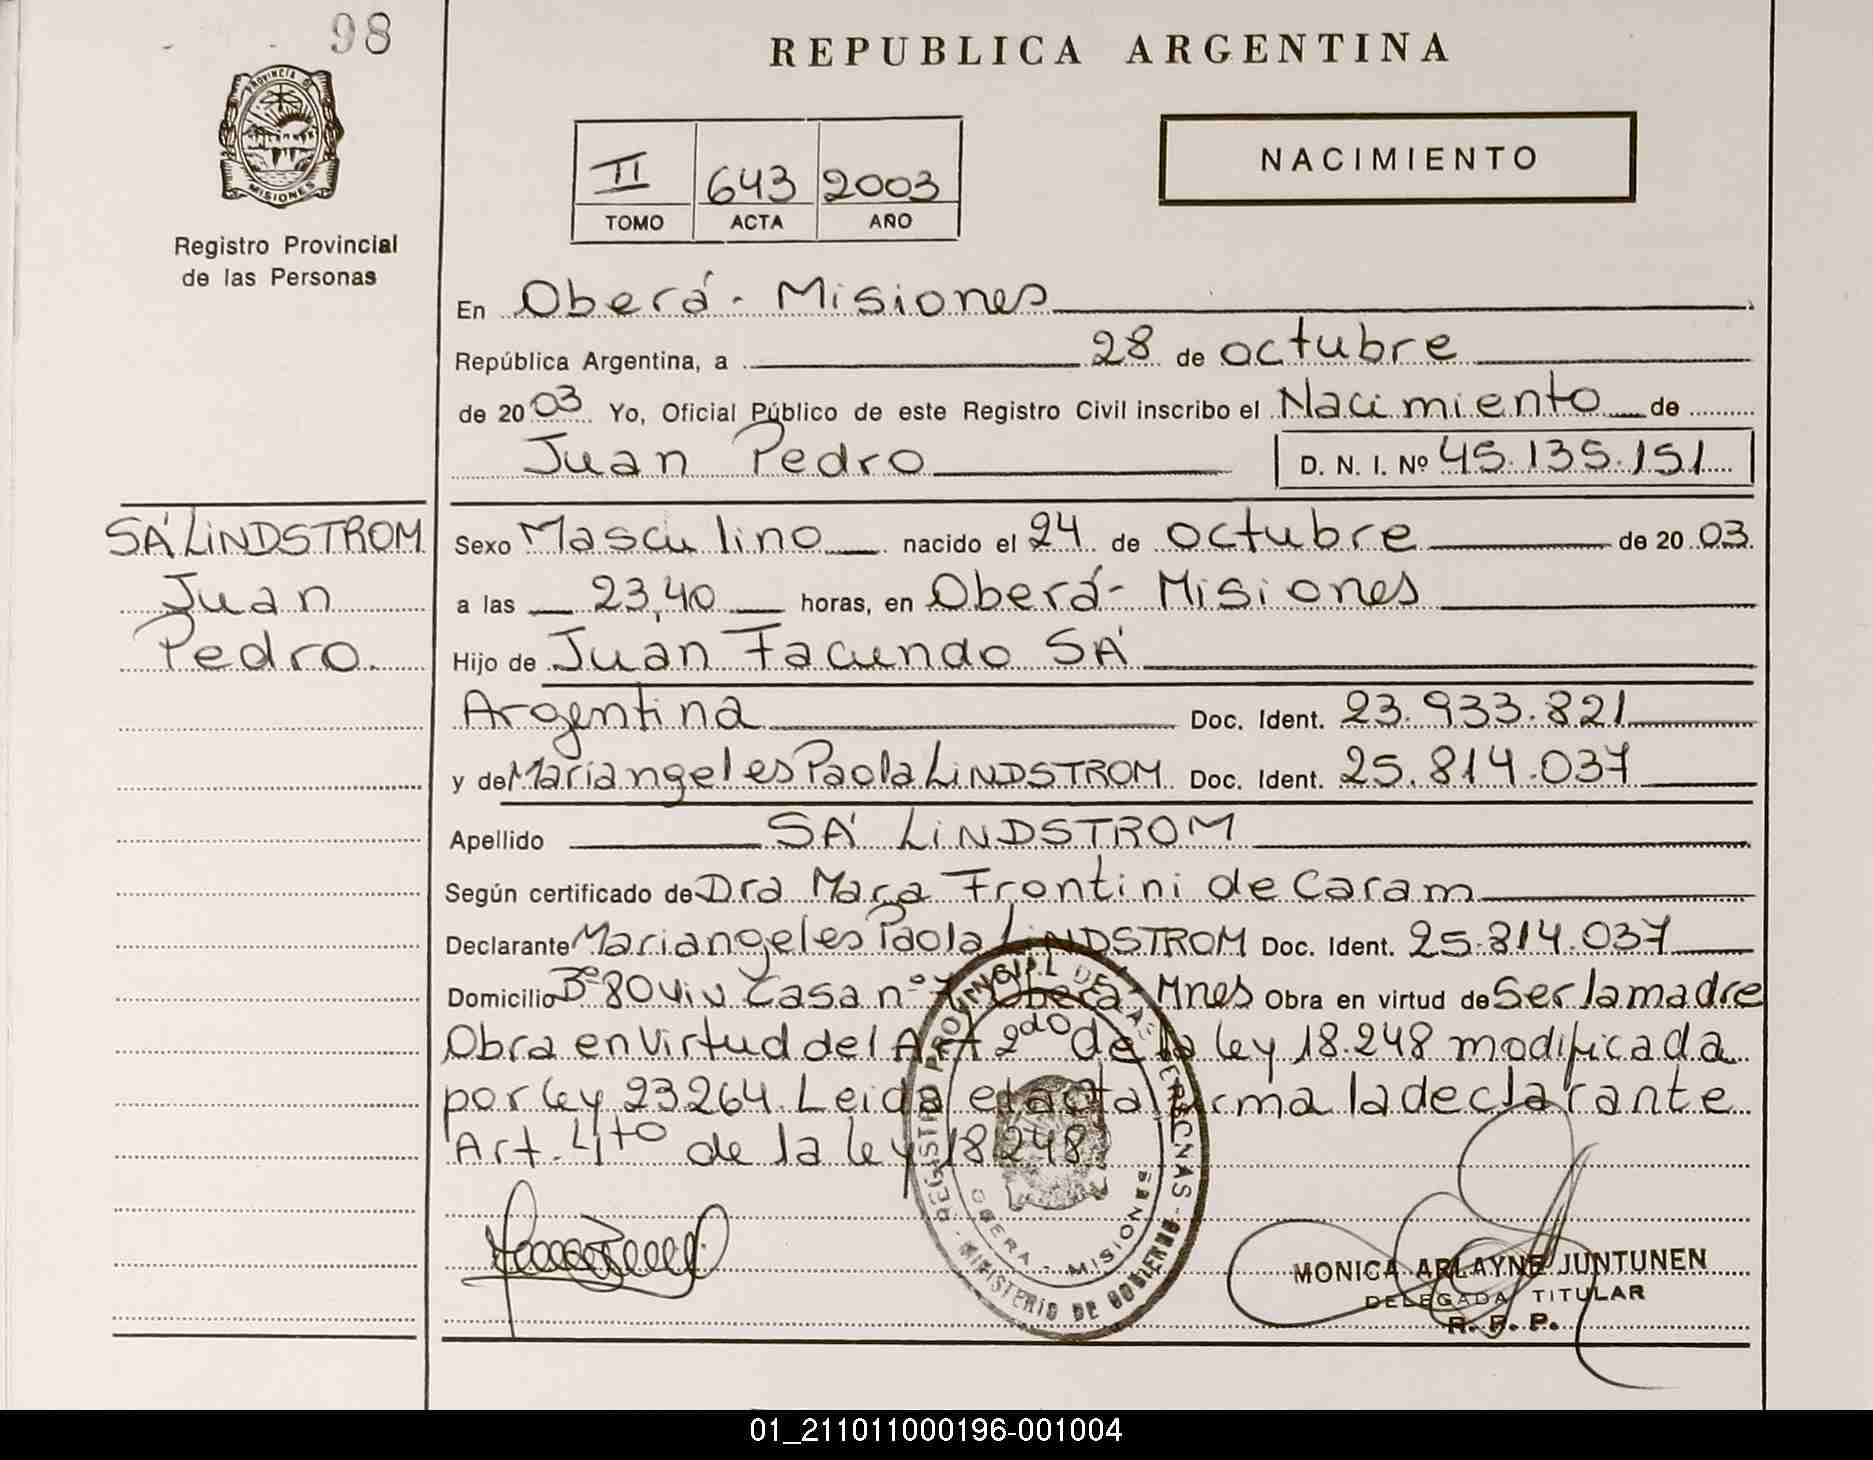 98
REPUBLICA ARGENTINA
PROVINCIA DE
MISIONES
Registro Provincial
de las Personas
II 643 2003
TOMO ACTA AÑO
NACIMIENTO
En Oberá - Misiones
República Argentina, a 28 de octubre
de 2003 Yo, Oficial Público de este Registro Civil inscribo el Nacimiento de
Juan Pedro D. N. I. Nº 45.135.151
SÁ LINDSTROM
Juan
Pedro
Sexo Masculino nacido el 24 de octubre de 2003
a las 23,40 horas, en Oberá - Misiones
Hijo de Juan Facundo SÁ
Argentina Doc. Ident. 23.933.821
y de Mariangeles Paola LINDSTROM Doc. Ident. 25.814.037
Apellido SÁ LINDSTROM
Según certificado de Dra Mara Frontini de Caram
Declarante Mariangeles Paola LINDSTROM Doc. Ident. 25.814.037
Domicilio Bº 80 Viv Casa nº Oberá - Mnes Obra en virtud de Ser la madre
Obra en Virtud del Art 2do de la ley 18.248 modificada
por ley 23264 Leida el acta firma la declarante
Art. 4to de la ley 18.248
REGISTRO PROVINCIAL DE LAS PERSONAS - MINISTERIO DE GOBIERNO
OBERA - MISIONES
MONICA ARLAYNE JUNTUNEN
DELEGADA TITULAR
R. P. P.
01_211011000196-001004